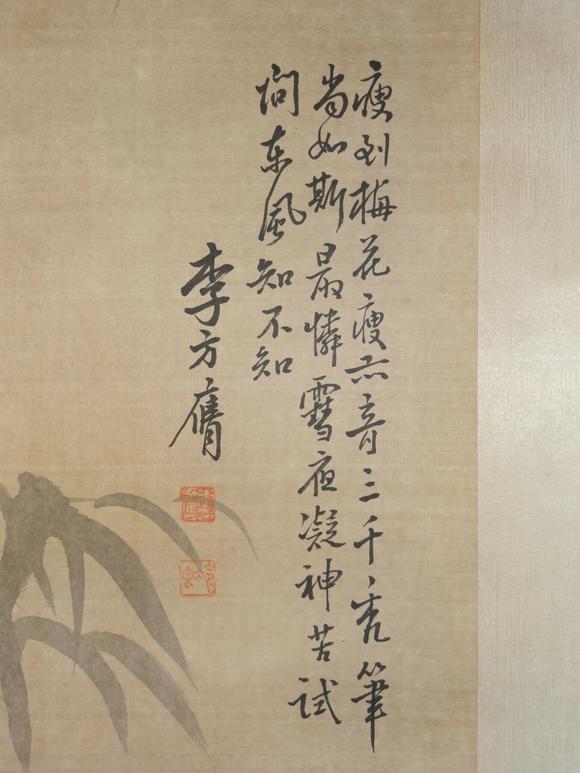 瘦到梅花瘦亦奇三千禿筆
尚如斯最憐雪夜凝神苦試
問東風知不知
李方膺